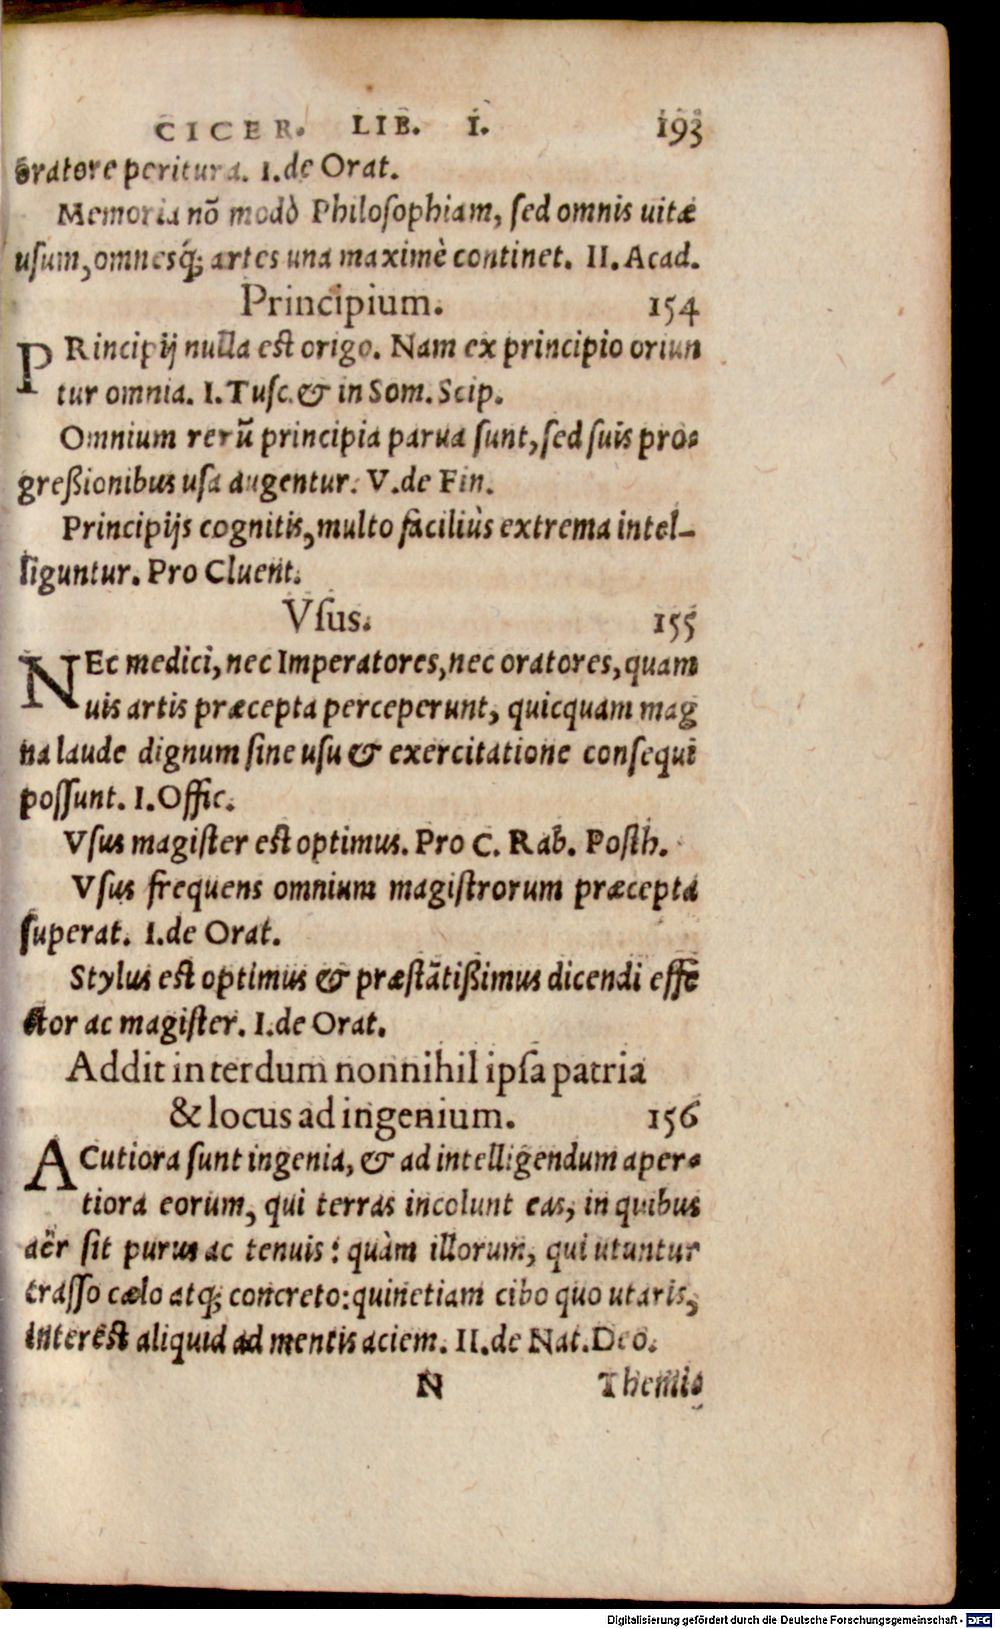 CICER. LIB. I. 193
oratore peritura. I. de Orat.
Memoria nō modò Philoſophiam, ſed omnis uitæ
uſum, omnesq́; artes una maximè continet. II. Acad.
Principium. 154
PRincipij nulla est origo. Nam ex principio oriun
tur omnia. I. Tuſc. & in Som. Scip.
Omnium rerū principia parua ſunt, ſed ſuis pro-
greßionibus uſa augentur. V. de Fin.
Principijs cognitis, multo faciliùs extrema intel-
liguntur. Pro Cluent.
Vſus. 155
NEc medici, nec Imperatores, nec oratores, quam
uis artis præcepta perceperunt, quicquam mag
na laude dignum ſine uſu & exercitatione conſequi
poſſunt. I. Offic.
Vſus magiſter est optimus. Pro C. Rab. Poſth.
Vſus frequens omnium magiſtrorum præcepta
ſuperat. I. de Orat.
Stylus est optimus & præſtātißimus dicendi effe
ctor ac magiſter. I. de Orat.
Addit interdum nonnihil ipſa patria
& locus ad ingenium. 156
ACutiora ſunt ingenia, & ad intelligendum aper-
tiora eorum, qui terras incolunt eas, in quibus
aër ſit purus ac tenuis: quàm illorum, qui utuntur
craſſo cælo atq; concreto: quinetiam cibo quo utaris,
intereſt aliquid ad mentis aciem. II. de Nat. Deo.
N Themis
Digitalisierung gefördert durch die Deutsche Forschungsgemeinschaft - DFG